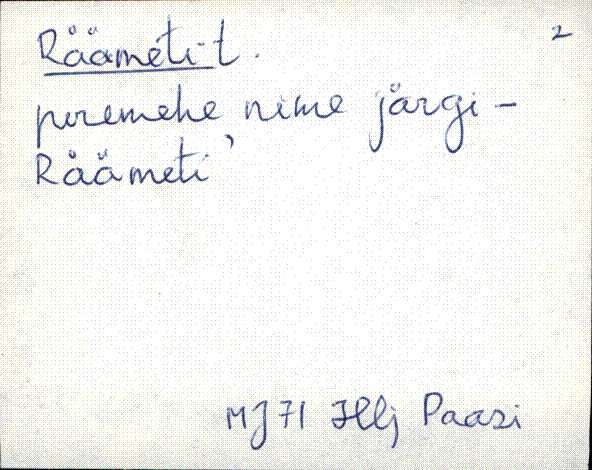 2
Räämeti-t.
peremehe nime järgi –
Räämeti'
MJ 71 Hlj Paasi